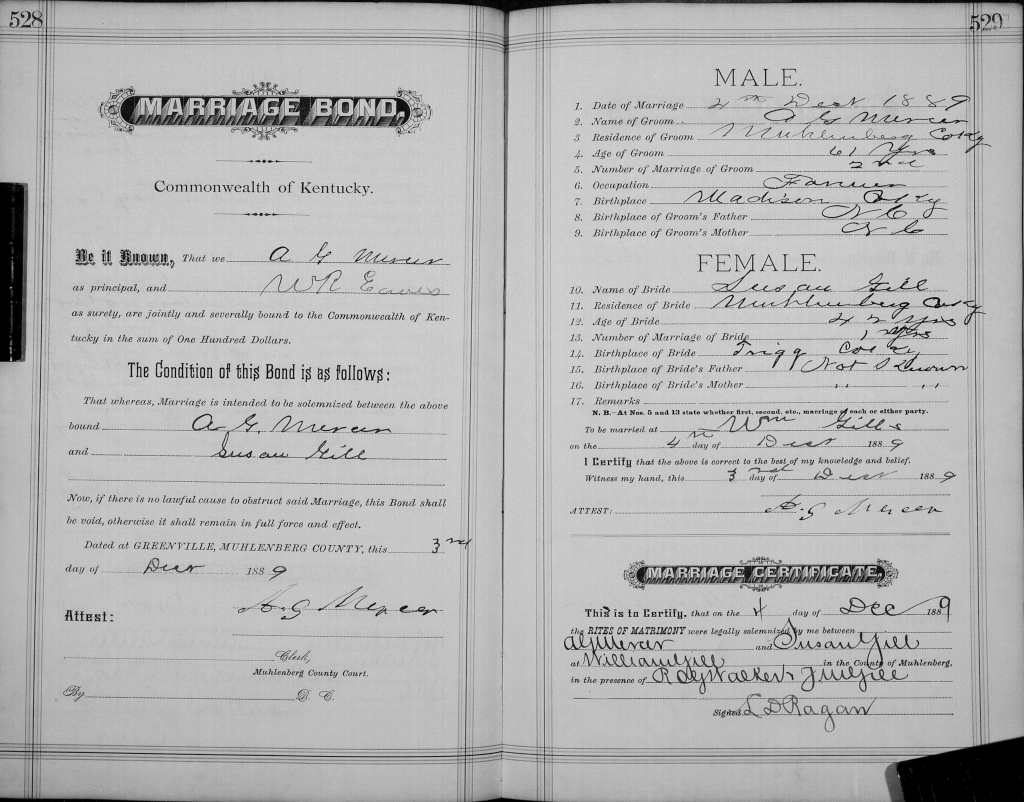 528
MARRIAGE BOND,
Commonwealth of Kentucky.
Be it Known, That we A G Mercer
as principal, and W R Eaves
as surety, are jointly and severally bound to the Commonwealth of Ken-
tucky in the sum of One Hundred Dollars.
The Condition of this Bond is as follows:
That whereas, Marriage is intended to be solemnized between the above
bound A. G. Mercer
and Susan Gill
Now, if there is no lawful cause to obstruct said Marriage, this Bond shall
be void, otherwise it shall remain in full force and effect.
Dated at GREENVILLE, MUHLENBERG COUNTY, this 3rd
day of Decr 1889
A. G Mercer
Attest:
Clerk,
Muhlenberg County Court.
By D. C.
529
MALE.
1. Date of Marriage 4th Decr 1889
2. Name of Groom A G Mercer
3 Residence of Groom Muhlenberg Co Ky
4. Age of Groom 61 Yrs
5. Number of Marriage of Groom 2nd
6. Occupation Farmer
7. Birthplace Madison Co Ky
8. Birthplace of Groom's Father N C
9. Birthplace of Groom's Mother N C
FEMALE.
10. Name of Bride Susan Gill
11. Residence of Bride Muhlenberg Co Ky
12. Age of Bride 42 Yrs
13. Number of Marriage of Bride 1
14. Birthplace of Bride Trigg Co Ky
15. Birthplace of Bride's Father Not Known
16. Birthplace of Bride's Mother " "
17. Remarks
N. B.—At Nos. 5 and 13 state whether first, second, etc., marriage of each or either party.
To be married at Wm Gills
on the 4th day of Decr 1889
I Certify that the above is correct to the best of my knowledge and belief.
Witness my hand, this 3rd day of Decr 1889
ATTEST: A. G Mercer
MARRIAGE CERTIFICATE.
This is to Certify, that on the 4 day of Dec 1889
the RITES OF MATRIMONY were legally solemnized by me between
A G Mercer and Susan Gill
at William Gill in the County of Muhlenberg,
in the presence of R Walker &
Signed L D Ragan